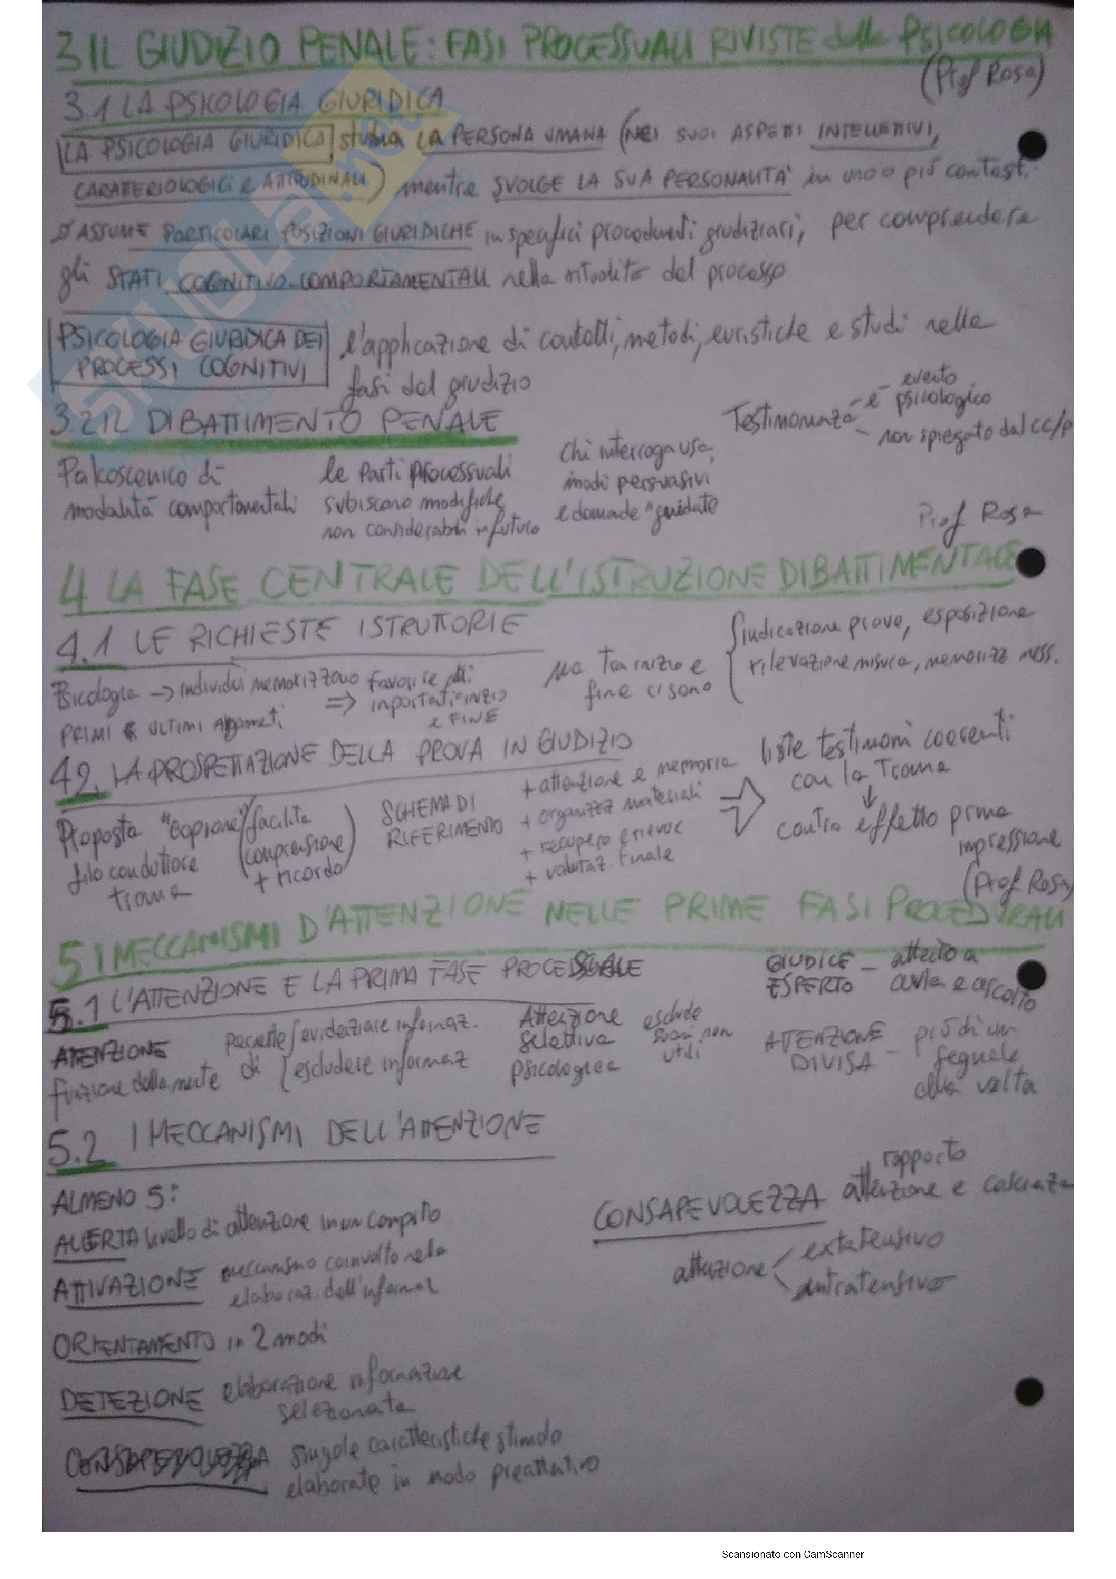 3 IL GIUDIZIO PENALE: FASI PROCESSUALI RIVISTE dalla PSICOLOGIA
(Prof Rosa)
3.1 LA PSICOLOGIA GIURIDICA
LA PSICOLOGIA GIURIDICA studia LA PERSONA UMANA (NEI SUOI ASPETTI INTELLETTIVI,
CARATTERIOLOGICI e ATTITUDINALI) mentre SVOLGE LA SUA PERSONALITÀ in uno o più contesti
ASSUME PARTICOLARI POSIZIONI GIURIDICHE in specifici procedimenti giudiziari, per comprendere
gli STATI COGNITIVO-COMPORTAMENTALI nella ritualità del processo
PSICOLOGIA GIURIDICA DEI
PROCESSI COGNITIVI
l'applicazione di costrutti, metodi, euristiche e studi nelle
fasi del giudizio
3.2 IL DIBATTIMENTO PENALE
Testimonianza
è evento
psicologico
non spiegato dal cc/p
Palcoscenico di
modalità comportamentali
le parti processuali
subiscono modifiche
non considerabili in futuro
Chi interroga usa,
modi persuasivi
e domande "guidate
Prof Rosa
4 LA FASE CENTRALE DELL'ISTRUZIONE DIBATTIMENTALE
4.1 LE RICHIESTE ISTRUTTORIE
Psicologia → individui memorizzano
PRIMI E ULTIMI Argomenti
⇒
inizio
e FINE
ma tra inizio e
fine ci sono
indicazione prove, esposizione
rilevazione misura, memorizz mess.
4.2. LA PROSPETTAZIONE DELLA PROVA IN GIUDIZIO
Proposta "copione"
filo conduttore
trama
(facilita
comprensione
+ ricordo)
SCHEMA DI
RIFERIMENTO
+ attenzione e memoria
+ organizz materiali
+ recupero e rievoc
+ valutaz. finale
liste testimoni coerenti
con la Trama
↓
contro effetto prima
impressione
(Prof Rosa)
5 I MECCANISMI D'ATTENZIONE NELLE PRIME FASI PROCEDURALI
5.1 L'ATTENZIONE E LA PRIMA FASE PROCESSUALE
ATTENZIONE
funzione della mente
permette di
evidenziare informaz.
escludere informaz
Attenzione
selettiva
psicologica
esclude
suoni non
utili
GIUDICE
ESPERTO
- attento a
aula e ascolto
ATTENZIONE
DIVISA
- più di un
segnale
alla volta
5.2 I MECCANISMI DELL'ATTENZIONE
ALMENO 5:
ALLERTA livello di attenzione in un compito
ATTIVAZIONE meccanismo coinvolto nella
elaboraz. dell'informaz
ORIENTAMENTO in 2 modi
DETEZIONE elaborazione informazione
selezionata
CONSAPEVOLEZZA singole caratteristiche stimolo
elaborate in modo preattentivo
CONSAPEVOLEZZA
rapporto
attenzione e coscienza
attenzione
extatensivo
intratensivo
SKUOLA.net
Scansionato con CamScanner